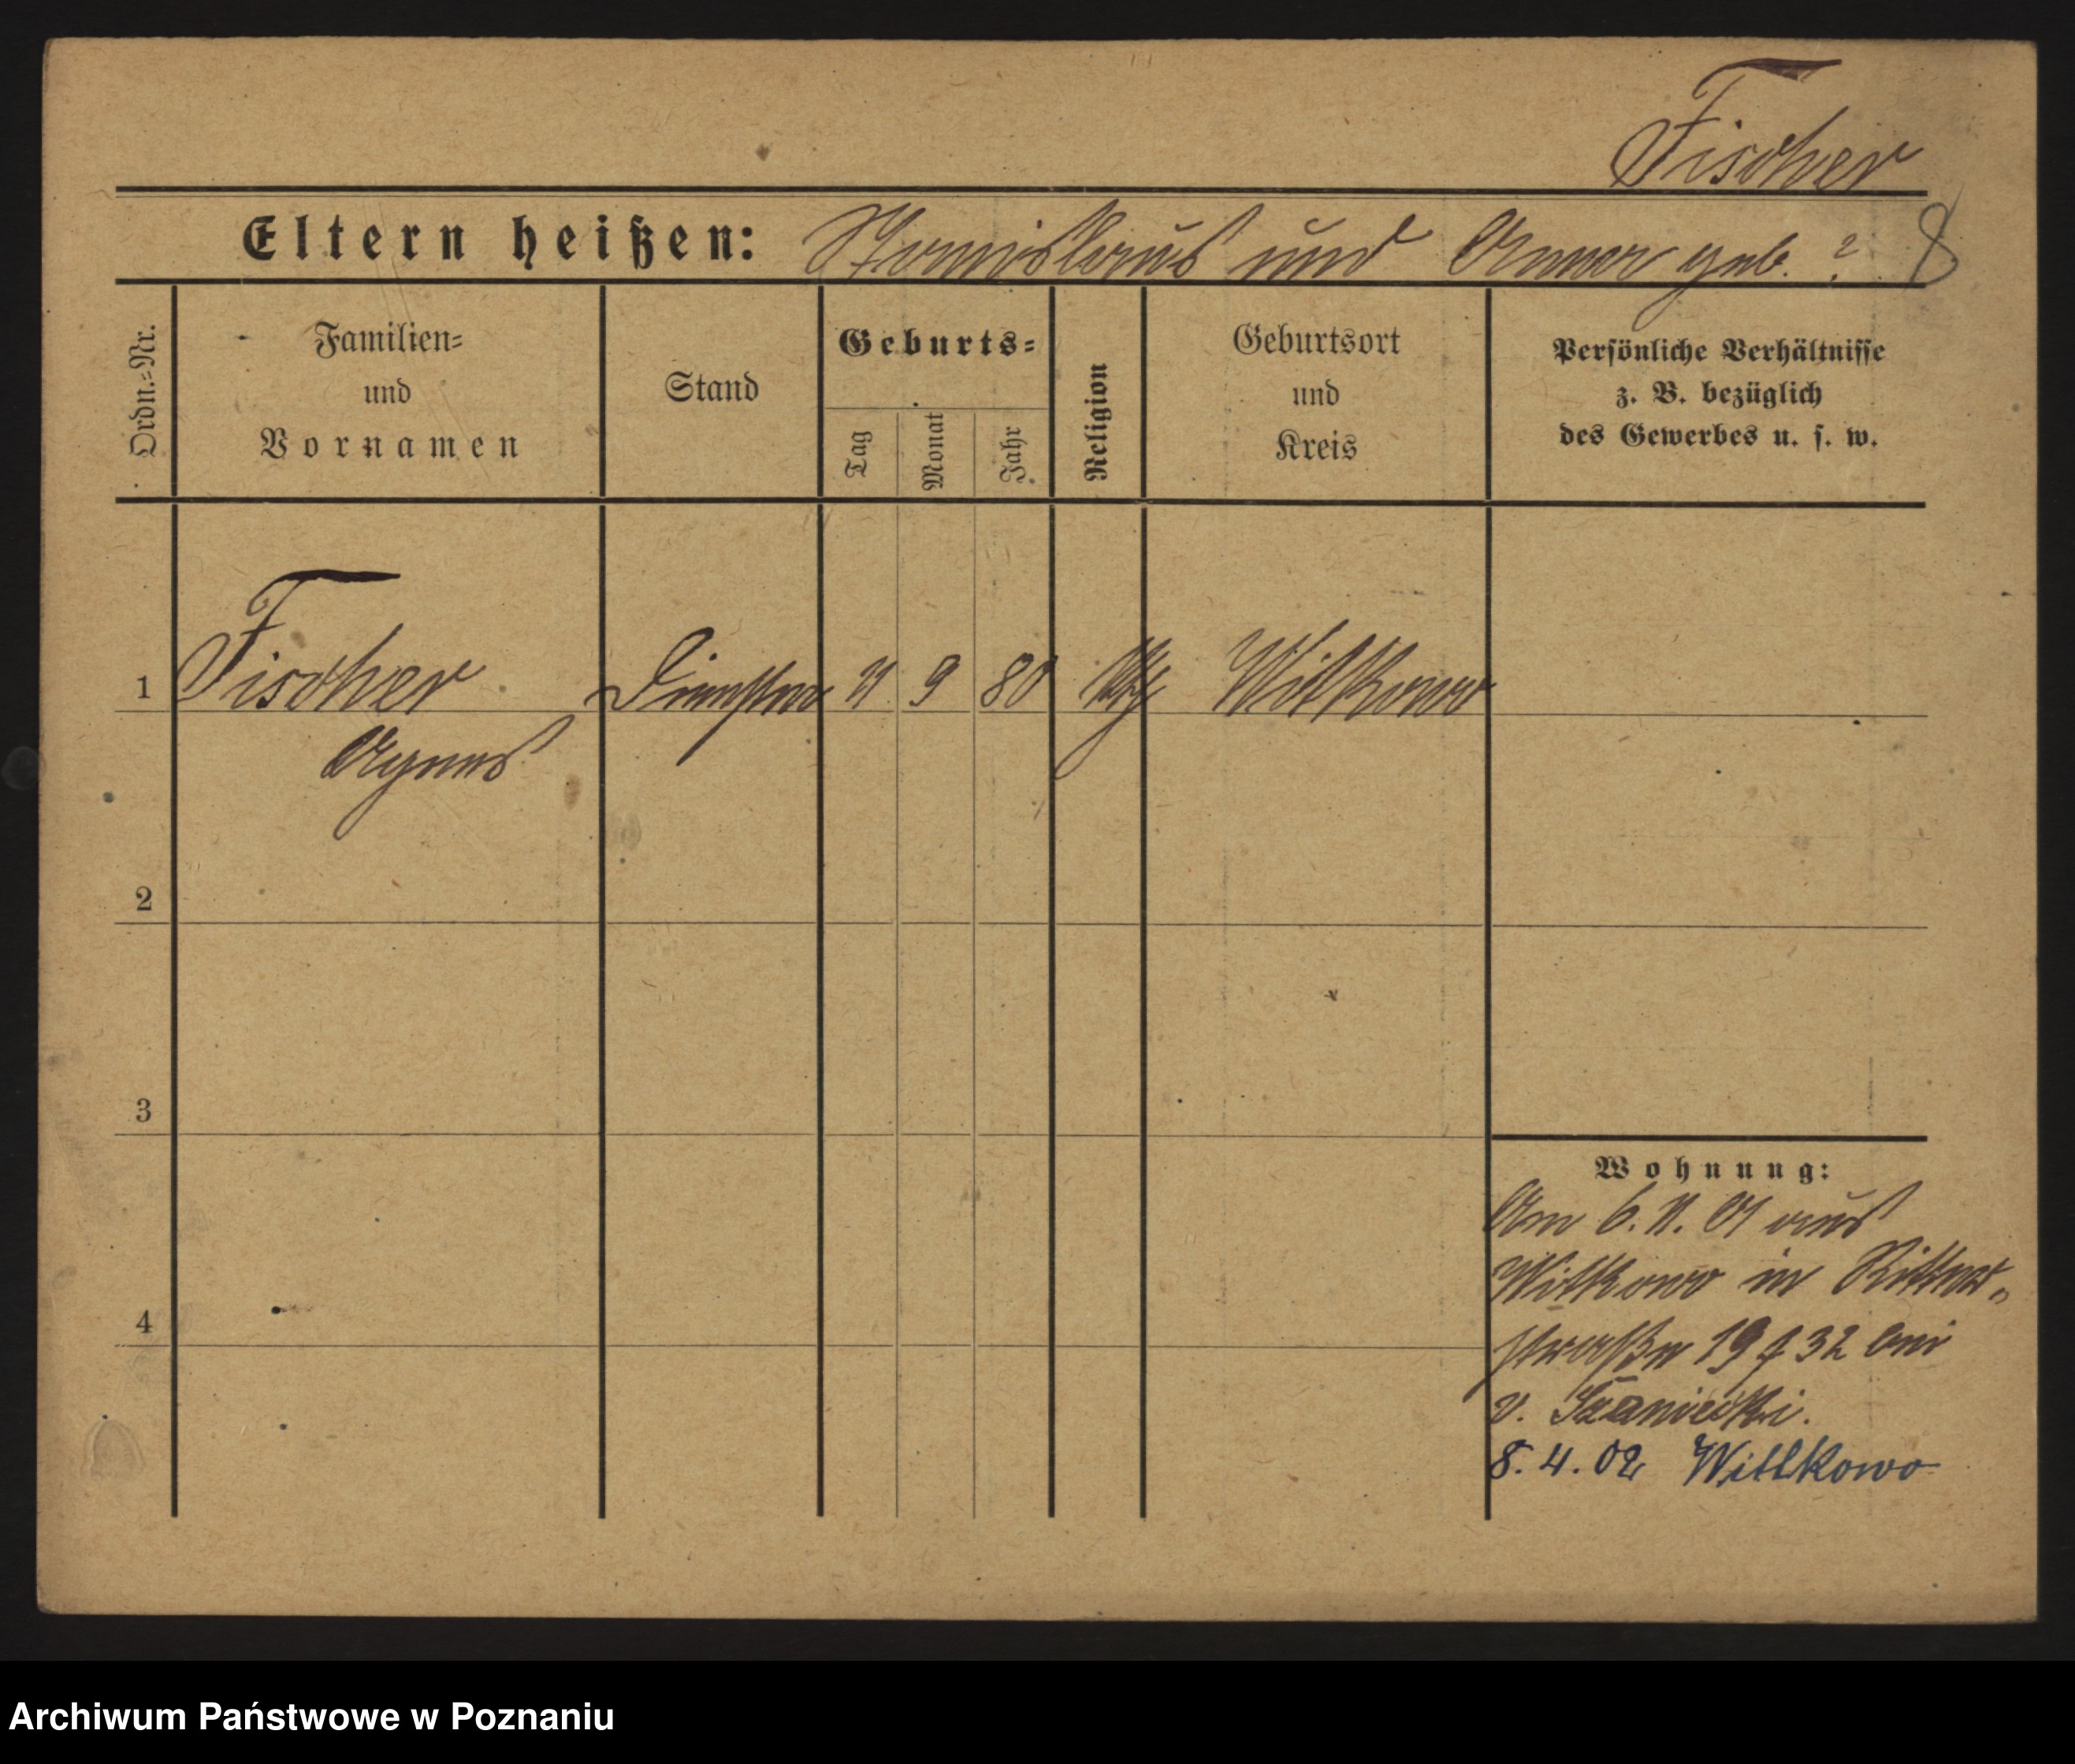 Fischer
Eltern heißen: Stanislaus und Anna geb. ? 8
Ordn.=Nr.
Familien=
und
Vornamen
Stand
Geburts=
Tag
Monat
Jahr
Religion
Geburtsort
und
Kreis
Persönliche Verhältnisse
z. B. bezüglich
des Gewerbes u. s. w.
1 Fischer 9 80 Witkowo
Agnes
2
3
4
Wohnung:
Am 6. 11. 01 aus
Witkowo in Ritter„
straße 19 32 bei
v. Szaniecki.
8. 4. 02 Wittkowo
Archiwum Państwowe w Poznaniu